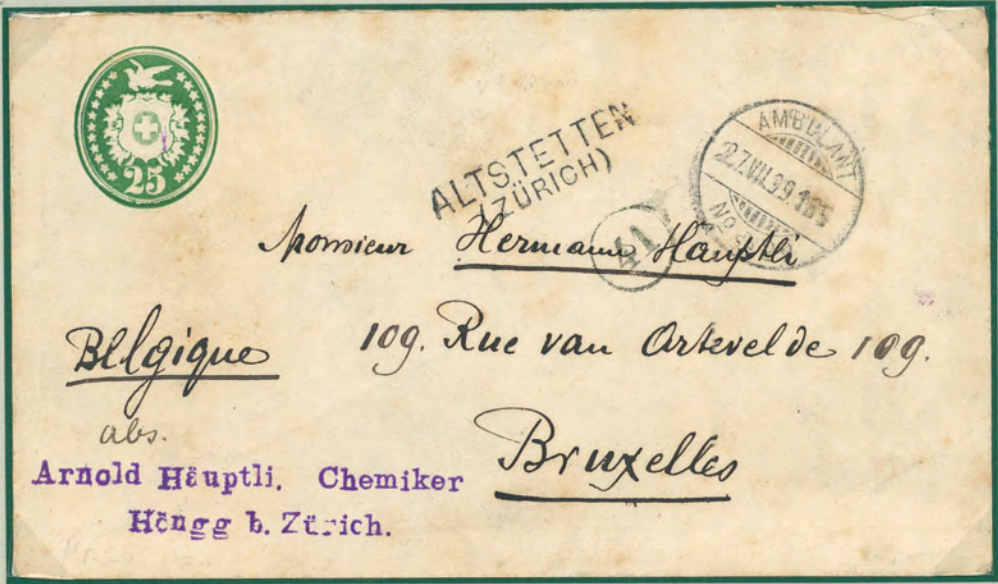 25
ALTSTETTEN
(ZÜRICH)
AMBULANT
27.VII.99.18
No
41
Monsieur Hermann Häuptli
109. Rue van Artevelde 109.
Belgique
Bruxelles
abs.
Arnold Häuptli. Chemiker
Höngg b. Zürich.